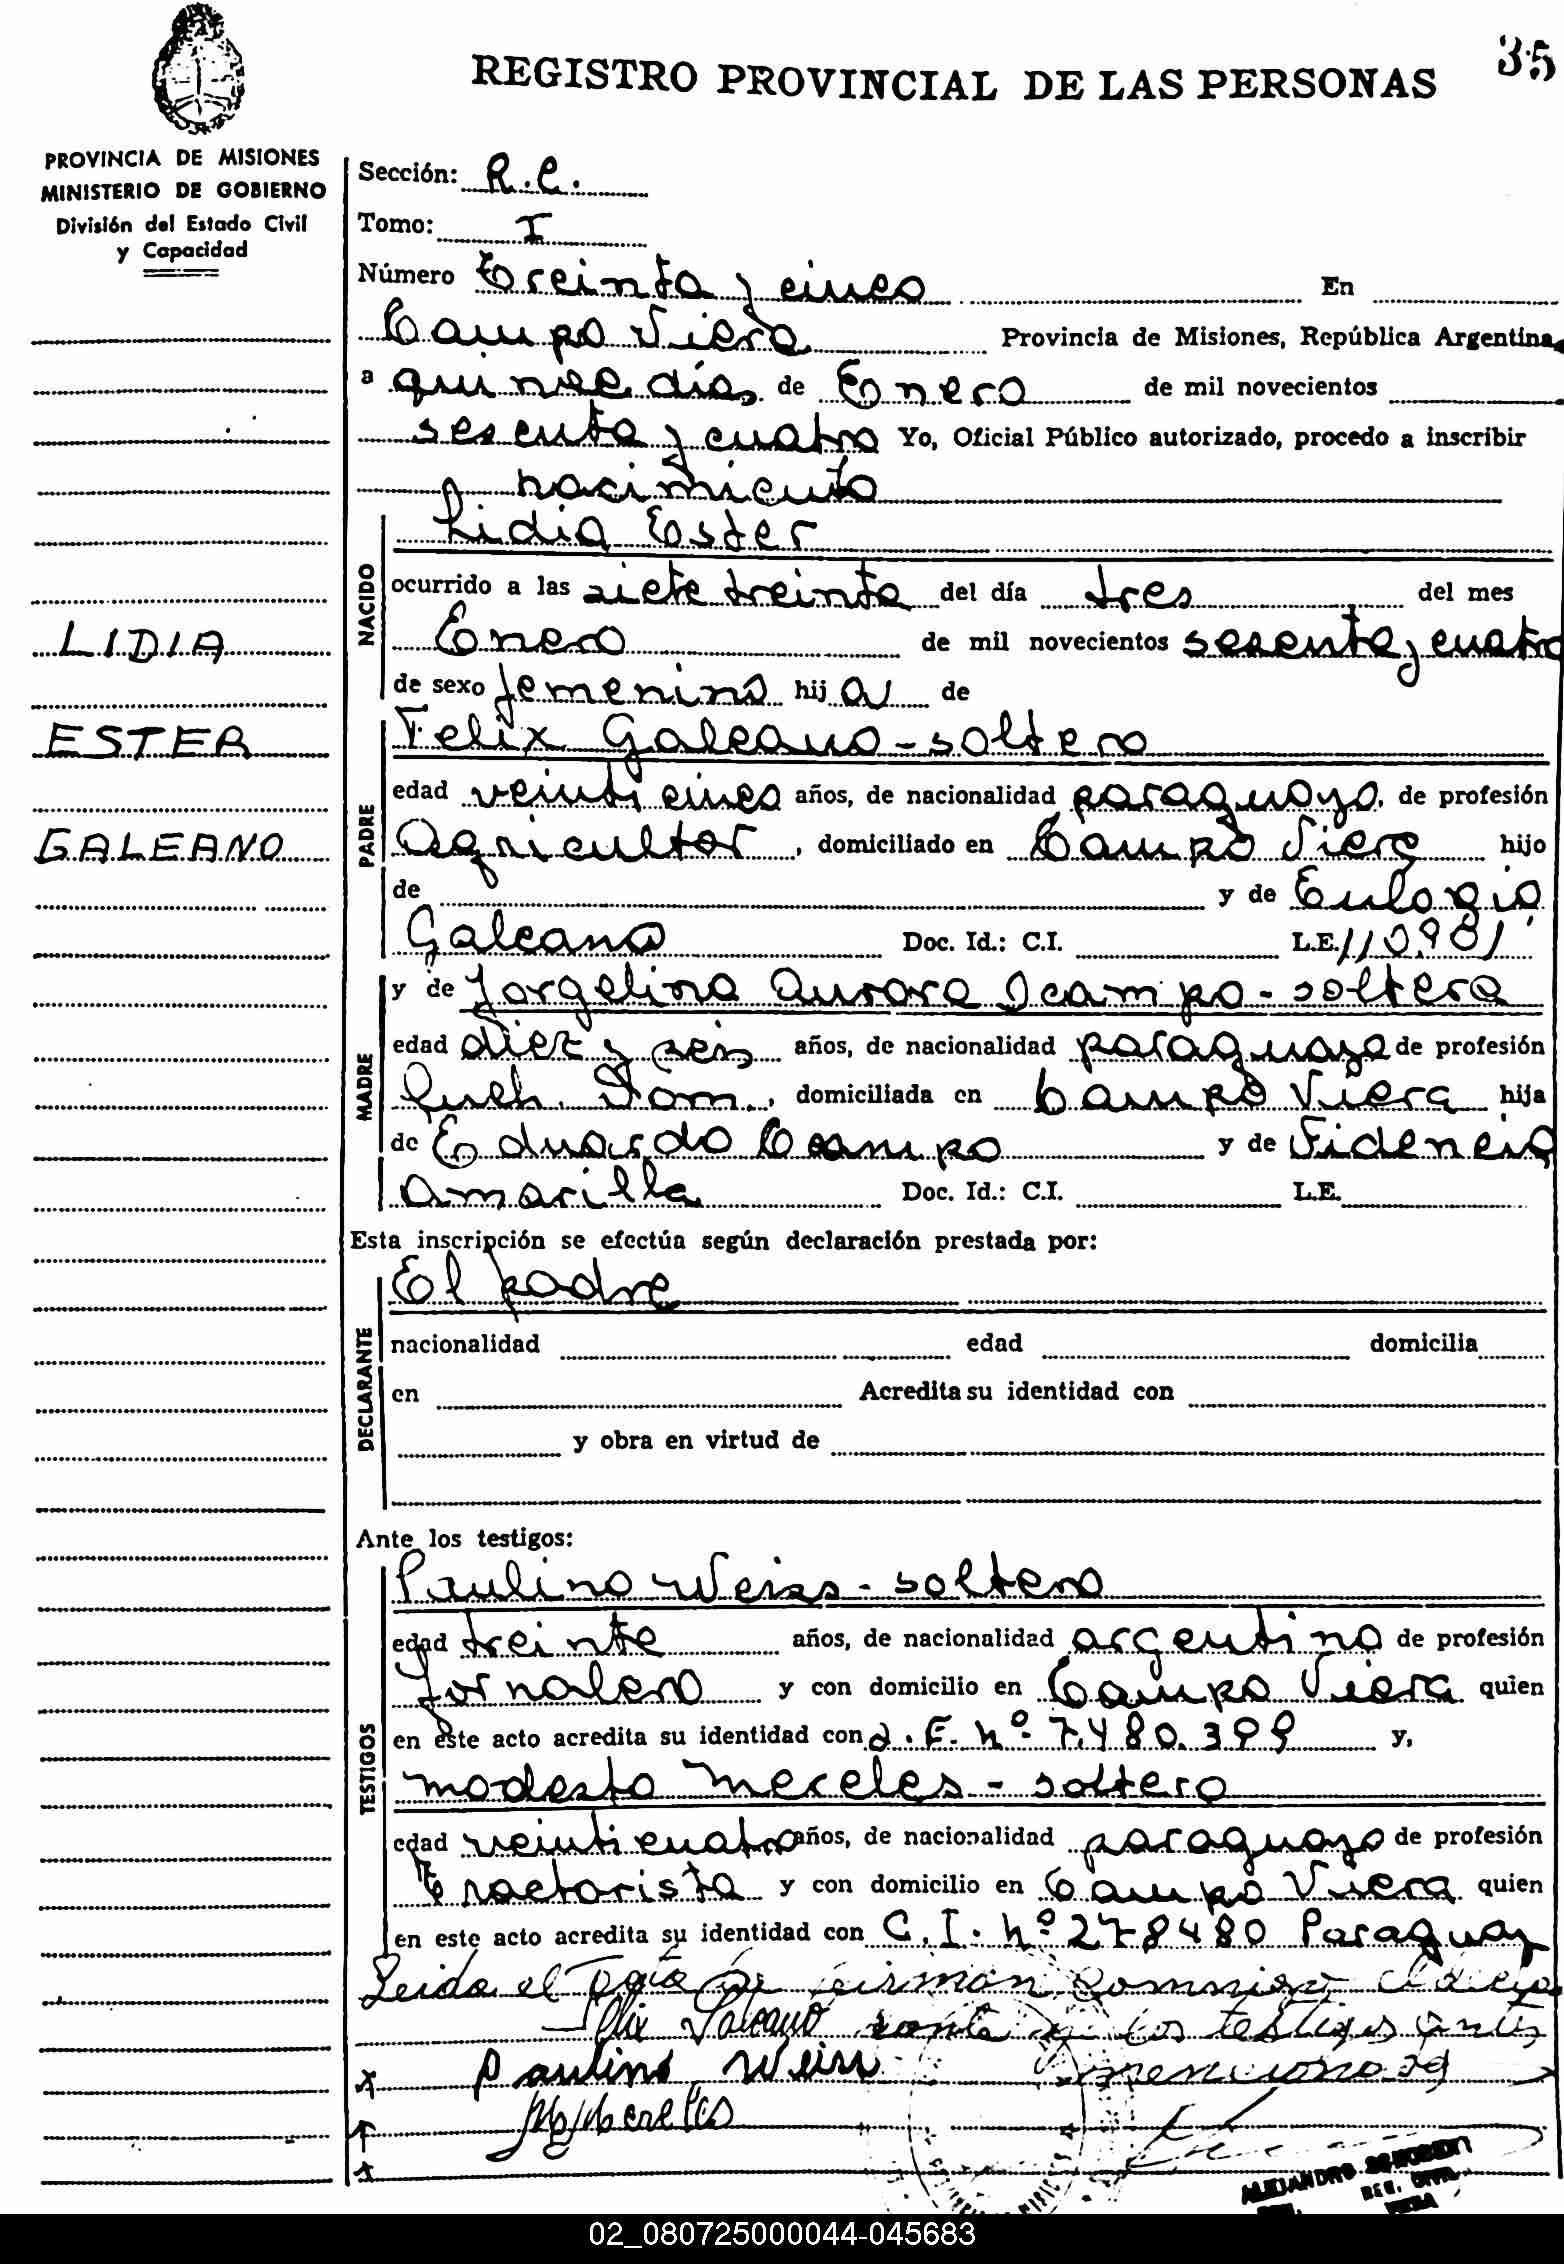 35
REGISTRO PROVINCIAL DE LAS PERSONAS
PROVINCIA DE MISIONES
MINISTERIO DE GOBIERNO
División del Estado Civil
y Capacidad
LIDIA
ESTER
GALEANO
Sección: R.C.
Tomo: I
Número Treinta y cinco En
Campo Viera Provincia de Misiones, República Argentina,
a quince días de Enero de mil novecientos
sesenta y cuatro Yo, Oficial Público autorizado, procedo a inscribir
nacimiento
NACIDO
Lidia Ester
ocurrido a las siete treinta del día tres del mes
Enero de mil novecientos sesenta y cuatro
de sexo femenino hija de
PADRE
Felix Galeano - soltero
edad veinticinco años, de nacionalidad paraguayo, de profesión
Agricultor, domiciliado en Campo Viera hijo
de y de Eulogia
Galeano Doc. Id.: C.I. L.E. 110.981
MADRE
y de Jorgelina Aurora Ocampo - soltera
edad diez y seis años, de nacionalidad paraguaya de profesión
Dom., domiciliada en Campo Viera hija
de Eduardo Ocampo y de Fidencia
Amarilla Doc. Id.: C.I. L.E.
Esta inscripción se efectúa según declaración prestada por:
DECLARANTE
El padre
nacionalidad edad domicilia
en Acredita su identidad con
y obra en virtud de
Ante los testigos:
TESTIGOS
Paulino Weiss - soltero
edad treinta años, de nacionalidad argentino de profesión
Jornalero y con domicilio en Campo Viera quien
en este acto acredita su identidad con L.E. nº 7.480.399 y,
modesto Mereles - soltero
edad veinticuatro años, de nacionalidad paraguayo de profesión
Tractorista y con domicilio en Campo Viera quien
en este acto acredita su identidad con C.I. nº 278480 Paraguay
Leida el acta la firman conmigo el decla
Felix Galeano rante y los testigos antes
x Paulino Weiss mencionados
Mereles
x
ALEJANDRO
REG. CIVIL
VIERA
02_080725000044-045683